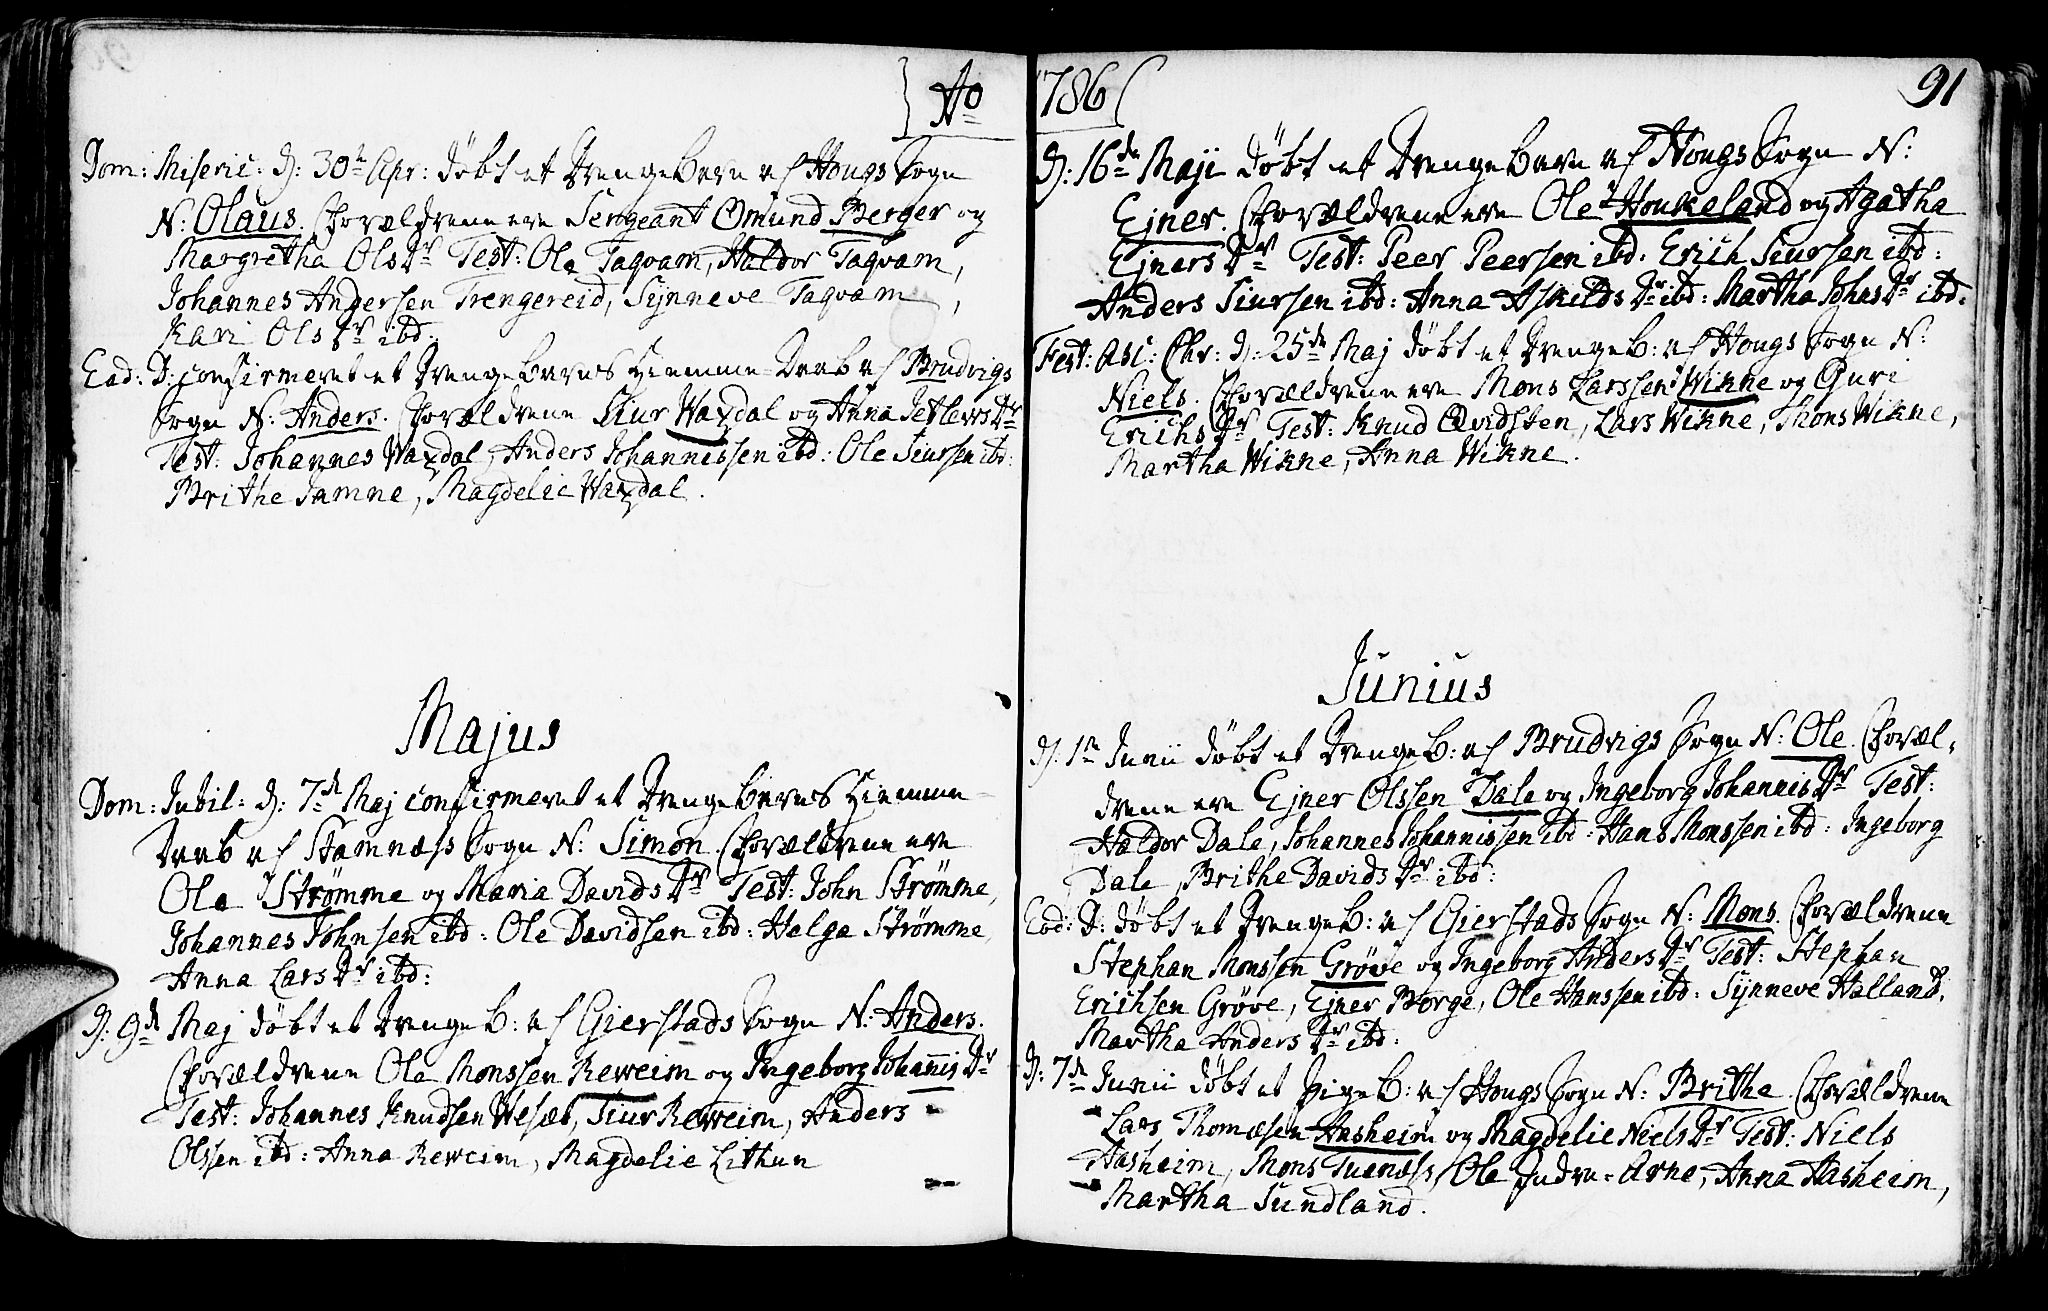 Ao
Dom: Miseric: d: 30te Apr: døbt et Drengebarn af Hougs Sogn
N: Olaus. Forældrene ere Sergeant Omund Berger og
Margretha OlsDr Test: Ole Taqvam, Haldor Taqvam,
Johannes Andersen Trengereid, Synneve Taqvam,
Kari OlsDr ibd:
Ead: D: confirmeret et Drengebarns Hiemme-Daab af Brudvigs
Sogn N: Anders. Forældrene Siur Waxdal og Anna DetlewsDr
Test: Johannes Waxdal, Anders Johannissen ibd: Ole Siursen ibd:
Brithe Jamne, Magdelie Waxdal.
Majus
Dom: Jubil: d: 7de Maj confirmeret et Drengebarns Hiemme-
Daab af Stamnæss Sogn N: Simon. Forældrene ere
Ole Strømme og Maria DavidsDr Test: John Strømme,
Johannes Johnsen ibd: Ole Davidsen ibd: Helge Strømme,
Anna LarsDr ibd:
d: 9de Maj døbt et DrengeB: af Gierstads Sogn N: Anders.
Forældrene Ole Monssen Reweim og Ingeborg JohannisDr
Test: Johannes Knudsen Wesæt, Siur Reweim, Anders
Olssen ibd: Anna Reweim, Magdelie Lithun
1786
91
d: 16de Maji døbt et Drengebarn af Hougs Sogn N:
Ejner. Forældrene ere Ole Houkeland og Agatha
EjnersDr Test: Peer Peersen ibd. Erich Siursen ibd:
Anders Siursen ibd: Anna AskildsDr ibd: Martha JohnsDr ibd:
Fest: Asc: Chr: d: 25de Maj døbt et DrengeB: af Hougs Sogn N:
Niels. Forældrene ere Mons Larssen Wikne og Guri
ErichsDr Test: Knud Qvidsten, Lars Wikne, Mons Wikne,
Martha Wikne, Anna Wikne.
Junius
d: 1te Junii døbt et DrengeB: af Brudvigs Sogn N: Ole. Foræl-
drene ere Ejner Olssen Dale og Ingeborg JohannisDr Test:
Haldor Dale, Johannes Johannissen ibd: Hans Monssen ibd: Ingeborg
Dale, Brithe DavidsDr ibd:
Eod: D: døbt et DrengeB: af Gierstads Sogn N: Mons. Forældrene
Stephan Monssen Grøve og Ingeborg AndersDr Test: Stephan
Erichsen Grøve, Ejner Borge, Ole Hanssen ibd: Synneve Halland,
Martha AndersDr ibd:
d: 7de Junii døbt et PigeB: af Hougs Sogn N: Brithe. Forældrene
Lars Thomæsen Aasheim og Magdelie NielsDr Test: Niels
Aasheim, Mons Tuenæss, Ole Indre-Arne, Anna Aasheim,
Martha Sundland.